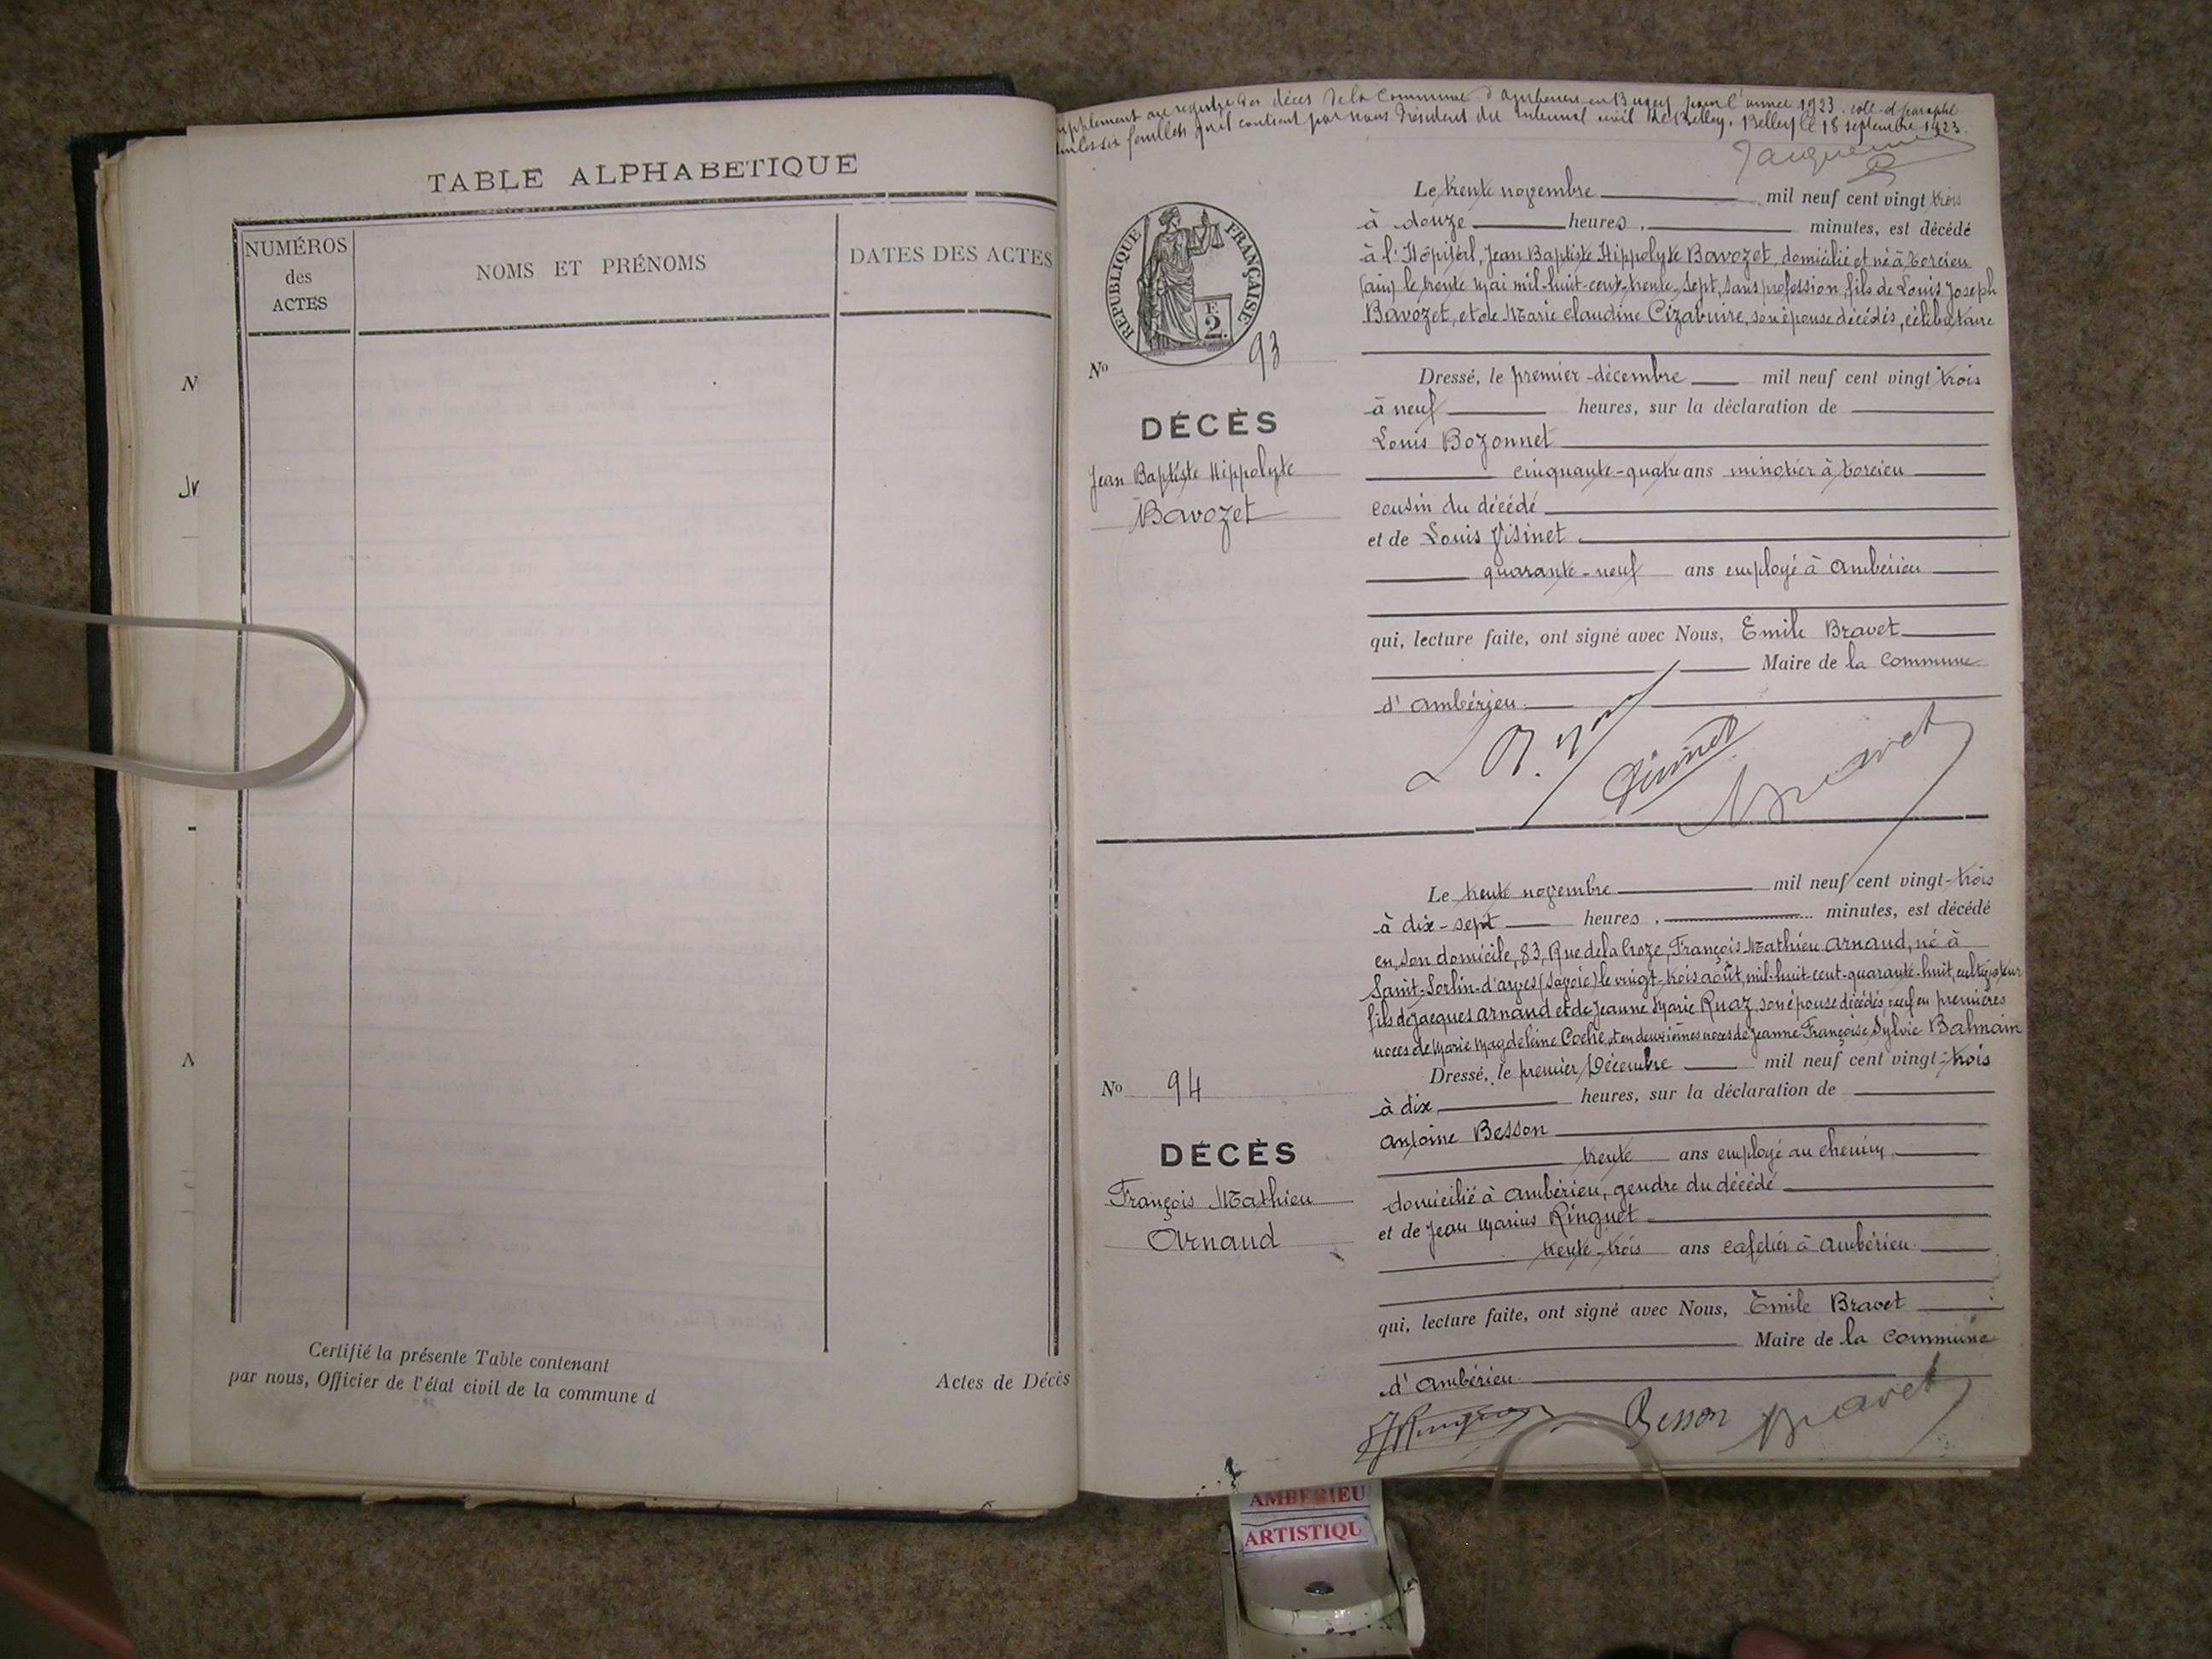 TABLE ALPHABETIQUE
NUMÉROS
des
ACTES
NOMS ET PRÉNOMS
DATES DES ACTES
Certifié la présente Table contenant
par nous, Officier de l'état civil de la commune d
Actes de Décès
supplément au registre des décès de la Commune d'Ambérieu en Bugey pour l'année 1923. coté et paraphé
feuillets qu'il contient par nous Président du tribunal civil de Belley. Belley le 18 septembre 1923.
REPUBLIQUE FRANÇAISE
E
2
No 93
DÉCÈS
Jean Baptiste Hippolyte
Bavozet
Le trente novembre mil neuf cent vingt trois
à douze heures, minutes, est décédé
à l'Hôpital, Jean Baptiste Hippolyte Bavozet, domicilié et né à torcieu
(ain) le trente mai mil-huit-cent-trente-sept, sans profession, fils de Louis Joseph
Bavozet, et de Marie Claudine Cizabuire, son épouse décédés, célibataire
Dressé, le premier décembre mil neuf cent vingt trois
à neuf heures, sur la déclaration de
Louis Bozonnet
cinquante-quatre ans minotier à torcieu
cousin du décédé
et de Louis Visinet
quarante-neuf ans employé à Ambérieu
qui, lecture faite, ont signé avec Nous, Emile Bravet
Maire de la Commune
d'Ambérieu
Bravet
No 94
DÉCÈS
François Mathieu
Arnaud
Le trente novembre mil neuf cent vingt-trois
à dix-sept heures, minutes, est décédé
en son domicile, 83, Rue de la Croze, François Mathieu Arnaud, né à
Saint-Sorlin-d'arves (Savoie) le vingt-trois août, mil-huit-cent-quarante-huit, cultivateur
fils de Jacques Arnaud et de Jeanne Marie Ruaz, son épouse décédés, veuf en premières
noces de Marie Magdeleine Coche, et en deuxièmes noces de Jeanne Françoise Sylvie Balmain
Dressé, le premier Décembre mil neuf cent vingt-trois
à dix heures, sur la déclaration de
Antoine Besson
trente ans employé au chemin,
domicilié à Ambérieu, gendre du décédé
et de Jean Marius Ringuet
trente-trois ans cafetier à Ambérieu
qui, lecture faite, ont signé avec Nous, Emile Bravet
Maire de la Commune
d'Ambérieu
Besson Bravet
AMBERIEU
ARTISTIQU